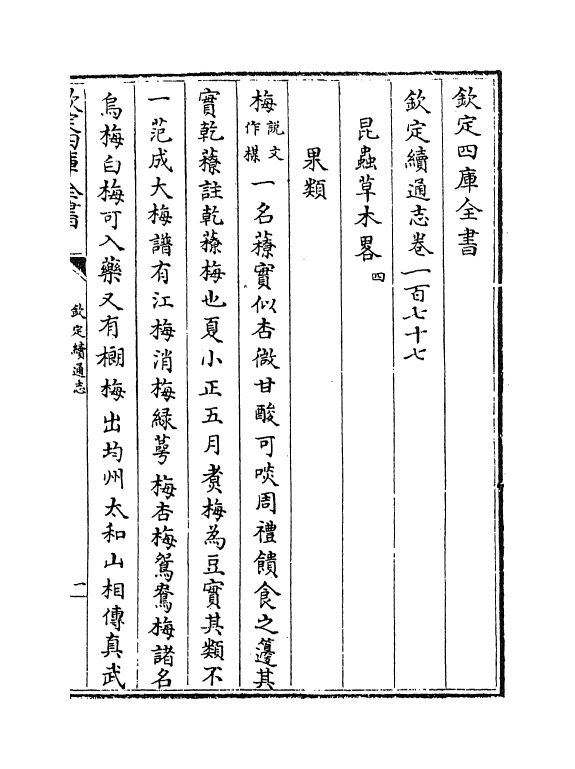 欽定四庫全書
欽定續通志卷一百七十七
昆蟲草木畧四
果類
梅說文作楳一名䕩實似杏微甘酸可啖周禮饋食之籩其
實乾䕩註乾䕩梅也夏小正五月煑梅為豆實其類不
一范成大梅譜有江梅消梅綠萼梅杏梅鴛鴦梅諸名
烏梅白梅可入藥又有榔梅出均州太和山相傳真武
欽定四庫全書
欽定續通志